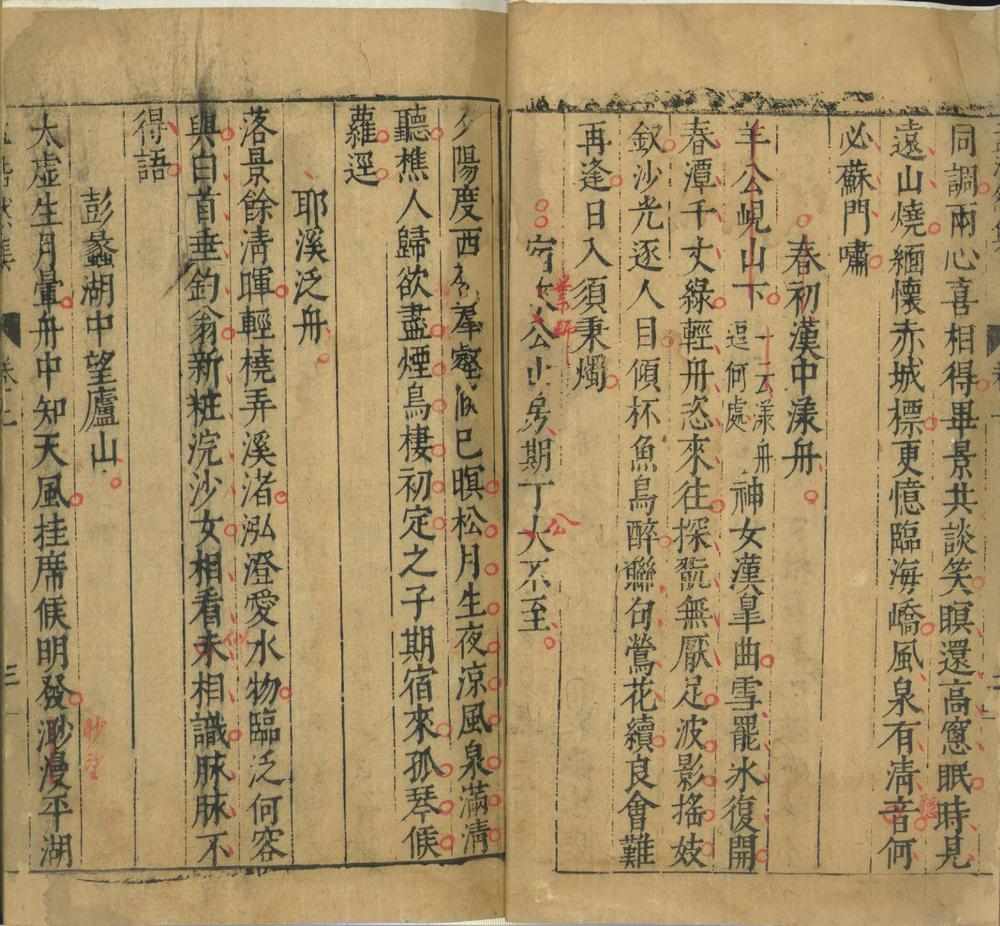 同調兩心喜相得畢景共談笑暝還高窻眠時見
遠山燒緬懷赤城標更憶臨海嶠風泉有清音何
必蘇門嘯
春初漢中漾舟
羊公峴山下
一云漾舟
逗何處
神女漢臯曲雪罷氷復開
春潭千丈綠輕舟恣來往探翫無厭足波影搖妓
釵沙光逐人目傾杯魚鳥醉聯句鶯花續良會難
再逢日入須秉燭
公山房期丁大不至
業師
公
聽
夕陽度西羣壑已暝松月生夜凉風泉滿清
聽樵人歸欲盡煙鳥棲初定之子期宿來孤琴候
蘿逕
耶溪泛舟
落景餘清暉輕橈弄溪渚泓澄愛水物臨泛何容
與白首垂釣翁新粧浣沙女相看未相識脉脉不
似
得語
彭蠡湖中望廬山
太虛生月暈舟中知天風挂席候明發渺漫平湖
眇望
三